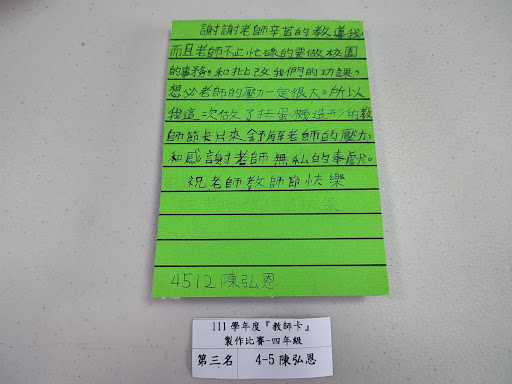 謝謝老師辛苦的教導我,
而且老師不止忙碌的要做校園
的事務。和批改我們的功課。
想必老師的壓力一定很大。所以
我這次做了扭蛋機造形的教
師節卡片來舒解老師的壓力。
和感謝老師無私的奉獻。
祝老師教師節快樂
4512陳弘恩
111學年度『教師卡』
製作比賽-四年級
第三名 4-5陳弘恩